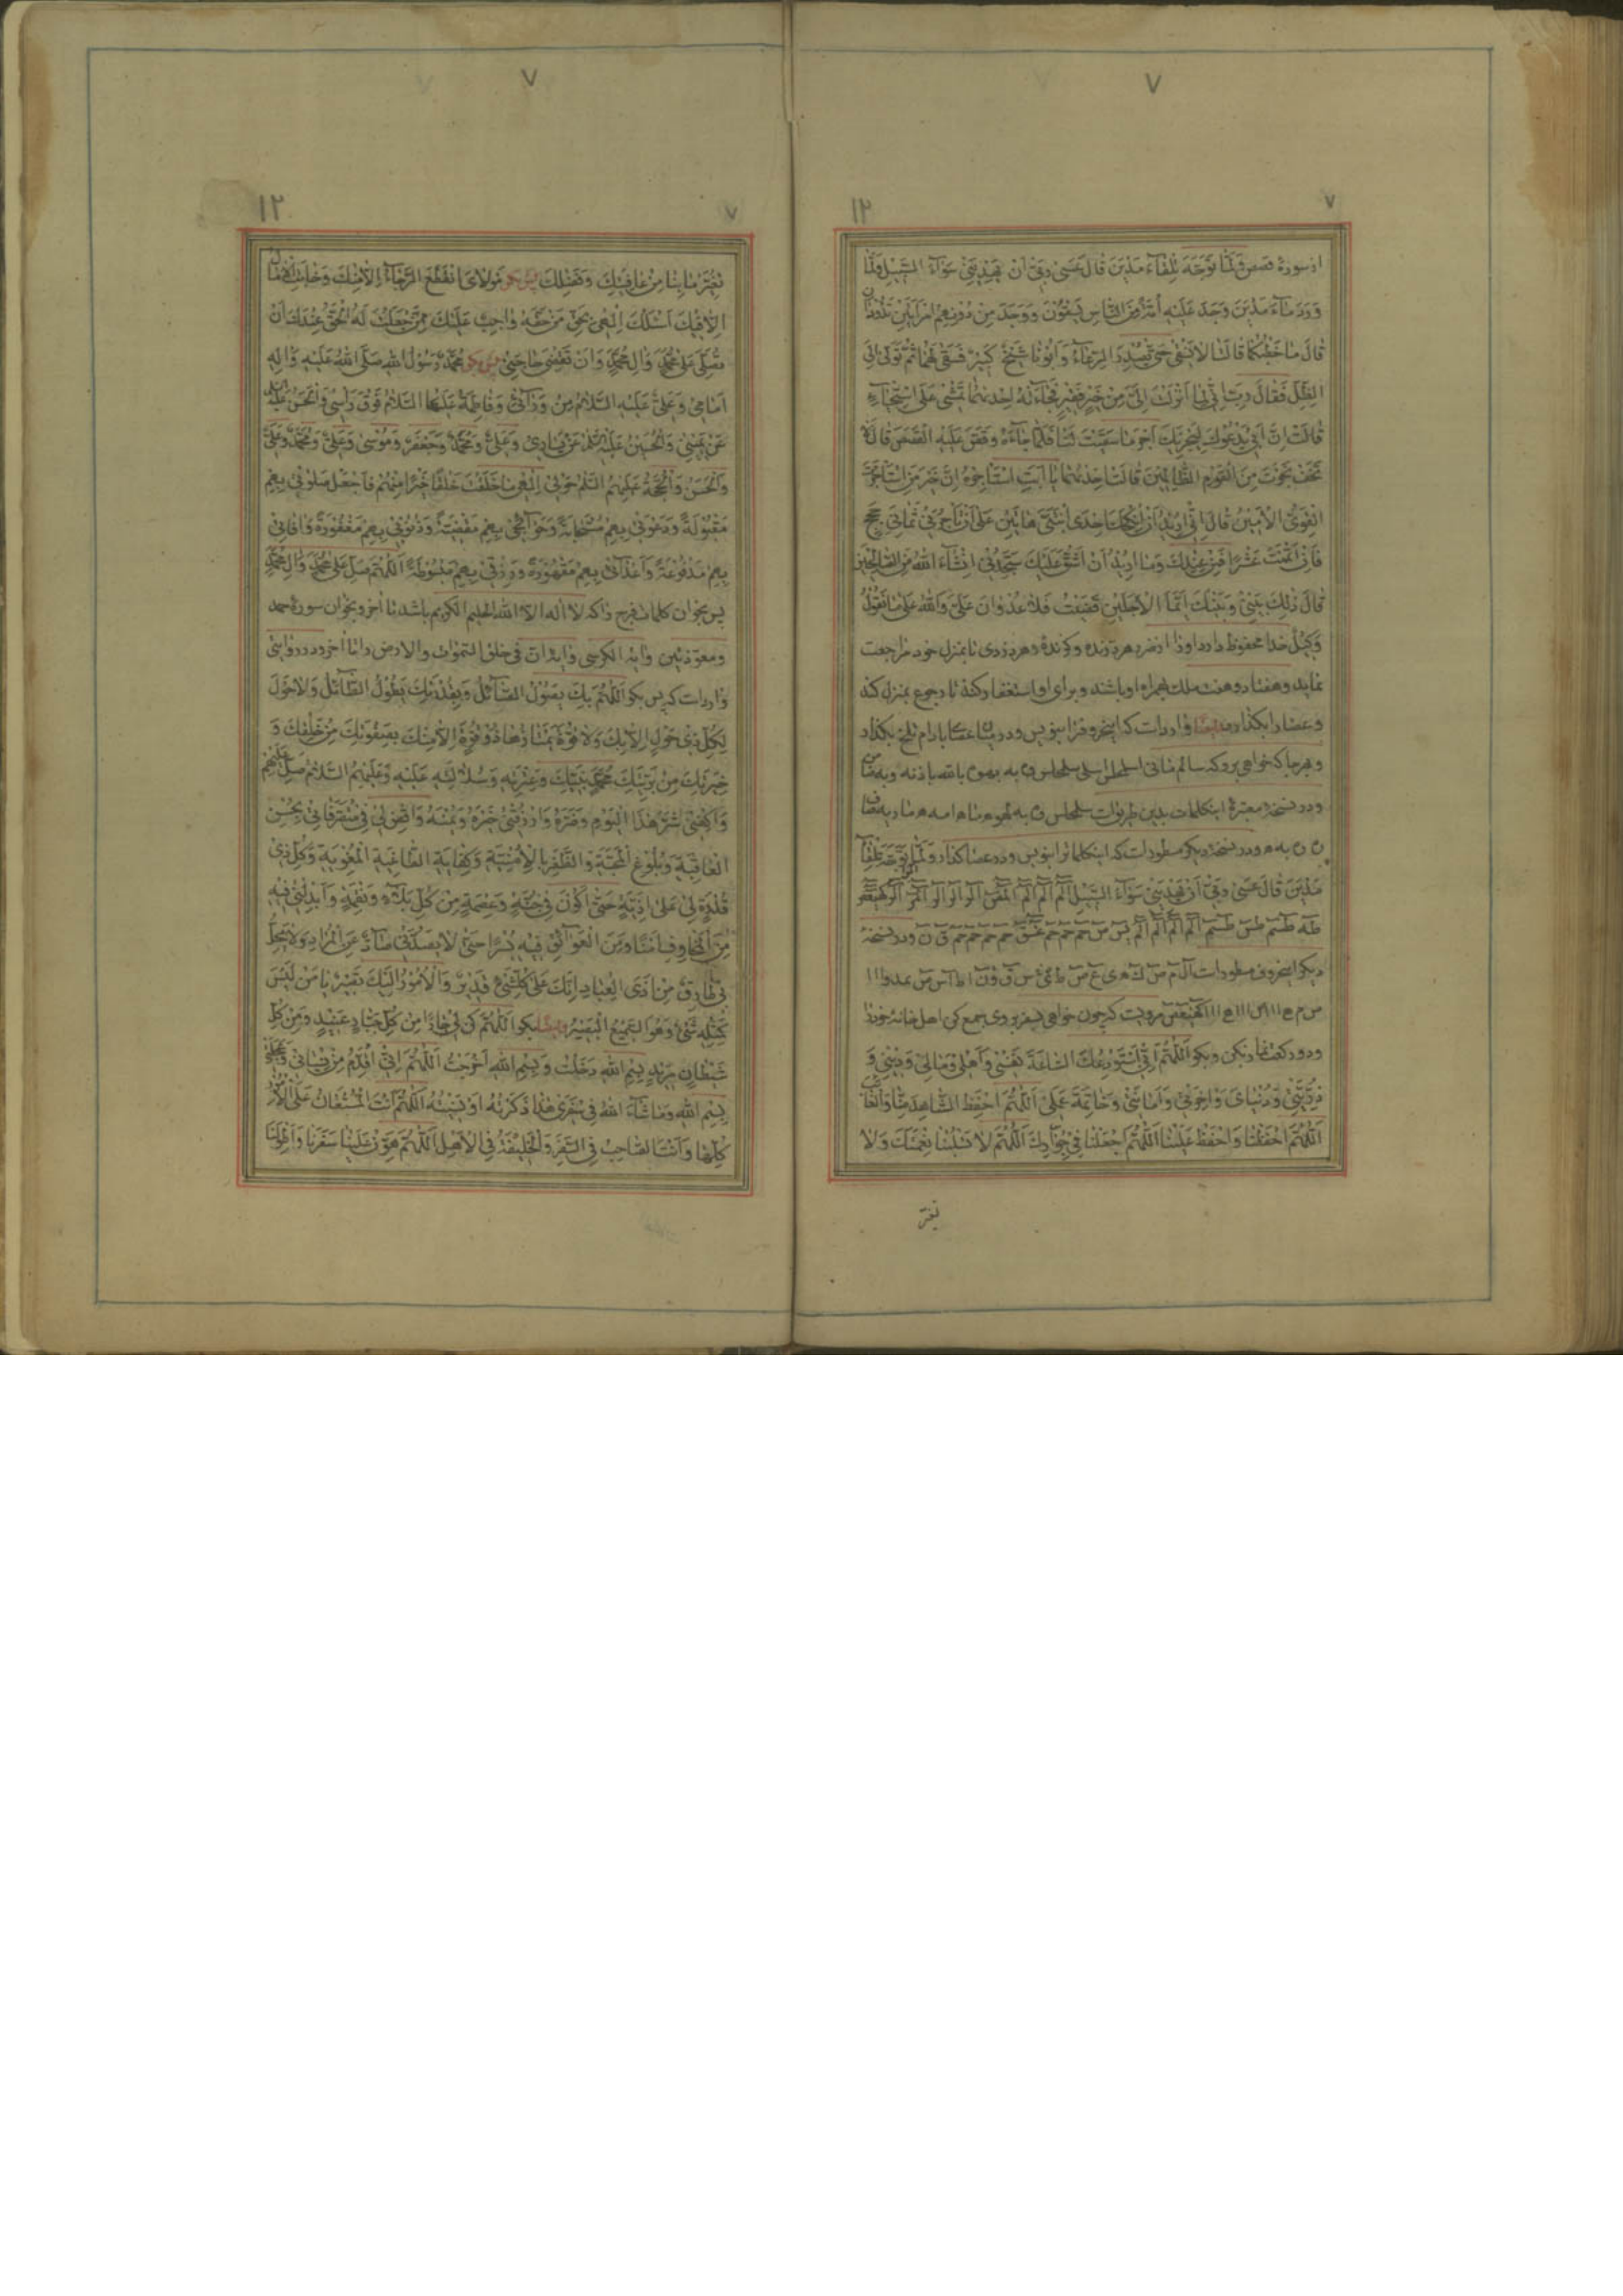 ۷
۱۲
۷
از سورهٔ قصص وَلَمَّا تَوَجَّهَ تِلْقَاءَ مَدْيَنَ قَالَ عَسَىٰ رَبِّي أَنْ يَهْدِيَنِي سَوَاءَ السَّبِيلِ وَلَمَّا
وَرَدَ مَاءَ مَدْيَنَ وَجَدَ عَلَيْهِ أُمَّةً مِنَ النَّاسِ يَسْقُونَ وَوَجَدَ مِنْ دُونِهِمُ امْرَأَتَيْنِ تَذُودَانِ
قَالَ مَا خَطْبُكُمَا قَالَتَا لَا نَسْقِي حَتَّى يُصْدِرَ الرِّعَاءُ وَأَبُونَا شَيْخٌ كَبِيرٌ فَسَقَى لَهُمَا ثُمَّ تَوَلَّى إِلَى
الظِّلِّ فَقَالَ رَبِّ إِنِّي لِمَا أَنْزَلْتَ إِلَيَّ مِنْ خَيْرٍ فَقِيرٌ فَجَاءَتْهُ إِحْدَاهُمَا تَمْشِي عَلَى اسْتِحْيَاءٍ
قَالَتْ إِنَّ أَبِي يَدْعُوكَ لِيَجْزِيَكَ أَجْرَ مَا سَقَيْتَ لَنَا فَلَمَّا جَاءَهُ وَقَصَّ عَلَيْهِ الْقَصَصَ قَالَ لَا
تَخَفْ نَجَوْتَ مِنَ الْقَوْمِ الظَّالِمِينَ قَالَتْ إِحْدَاهُمَا يَا أَبَتِ اسْتَأْجِرْهُ إِنَّ خَيْرَ مَنِ اسْتَأْجَرْتَ
الْقَوِيُّ الْأَمِينُ قَالَ إِنِّي أُرِيدُ أَنْ أُنْكِحَكَ إِحْدَى ابْنَتَيَّ هَاتَيْنِ عَلَى أَنْ تَأْجُرَنِي ثَمَانِيَ حِجَجٍ
فَإِنْ أَتْمَمْتَ عَشْرًا فَمِنْ عِنْدِكَ وَمَا أُرِيدُ أَنْ أَشُقَّ عَلَيْكَ سَتَجِدُنِي إِنْشَاءَ اللَّهُ مِنَ الصَّالِحِينَ
قَالَ ذَٰلِكَ بَيْنِي وَبَيْنَكَ أَيَّمَا الْأَجَلَيْنِ قَضَيْتُ فَلَا عُدْوَانَ عَلَيَّ وَاللَّهُ عَلَىٰ مَا نَقُولُ
وَكِيلٌ خدا محفوظ دارد او را از ضرر هر درنده و کزندهٔ و هر دزدی تا بمنزل خود مراجعت
نماید و هفتاد و هفت ملک همراه او باشند و برای او استغفار کنند تا رجوع بمنزل کند
و عصا را بکذارد وارداست که اینحروف را بنویس و در میان عصا بادام تلخ بکذار
و هر جا که خواهی برو که سالم مانی
و در نسخهٔ معتبرهٔ اینکلمات بدین طریق است
و در نسخهٔ دیکر مسطور است که اینکلمات را بنویس و در عصا کذار وَلَمَّا تَوَجَّهَ تِلْقَاءَ
مَدْيَنَ قَالَ عَسَىٰ رَبِّي أَنْ يَهْدِيَنِي سَوَاءَ السَّبِيلِ الم الم الم المص الر الر الر الر المر الر کهیعص
طه طسم طس طسم الم الم الم الم یس ص حم حم حم عسق حم حم حم حم ق ن و در نسخهٔ
دیکر اینحروف مسطور است
کهیعص مرویست که چون خواهی بسفر بروی جمع کن اهل خانهٔ خود را
و دو رکعت نماز بکن و بکو اَللّٰهُمَّ اِنِّي اَسْتَوْدِعُكَ السَّاعَةَ نَفْسِي وَاَهْلِي وَمَالِي وَدِينِي وَ
ذُرِّيَّتِي وَدُنْيَايَ وَآخِرَتِي وَاَمَانَتِي وَخَاتِمَةَ عَمَلِي اَللّٰهُمَّ احْفَظِ الشَّاهِدَ مِنَّا وَالْغَائِبَ
اَللّٰهُمَّ احْفَظْنَا وَاحْفَظْ عَلَيْنَا اَللّٰهُمَّ اجْعَلْنَا فِي جِوَارِكَ اَللّٰهُمَّ لَا تَسْلُبْنَا نِعْمَتَكَ وَلَا
تغیر
۷
۱۲
۷
تُغَيِّرْ مَا بِنَا مِنْ عَافِيَتِكَ وَفَضْلِكَ پس بکو مَوْلَايَ انْقَطَعَ الرَّجَاءُ اِلَّا مِنْكَ وَخَابَتِ الْآمَالُ
اِلَّا فِيكَ اَسْئَلُكَ اِلٰهِي بِحَقِّ مَنْ حَقُّهُ وَاجِبٌ عَلَيْكَ مِمَّنْ جَعَلْتَ لَهُ الْحَقَّ عِنْدَكَ اَنْ
تُصَلِّيَ عَلٰى مُحَمَّدٍ وَآلِ مُحَمَّدٍ وَاَنْ تَقْضِيَ حَاجَتِي پس بکو مُحَمَّدٌ رَسُولُ اللهِ صَلَّى اللهُ عَلَيْهِ وَآلِهِ
اَمَامِي وَعَلِيٌّ عَلَيْهِ السَّلَامُ مِنْ وَرَائِي وَفَاطِمَةُ عَلَيْهَا السَّلَامُ فَوْقَ رَأْسِي وَالْحَسَنُ عَلَيْهِ السَّلَامُ
عَنْ يَمِينِي وَالْحُسَيْنُ عَلَيْهِ السَّلَامُ عَنْ يَسَارِي وَعَلِيٌّ وَمُحَمَّدٌ وَجَعْفَرٌ وَمُوسٰى وَعَلِيٌّ وَمُحَمَّدٌ وَعَلِيٌّ
وَالْحَسَنُ وَالْحُجَّةُ عَلَيْهِمُ السَّلَامُ حَوْلِي اِلٰهِي مَا خَلَقْتَ خَلْقًا خَيْرًا مِنْهُمْ فَاجْعَلْ صَلَوَاتِي بِهِمْ
مَقْبُولَةً وَدَعَوَاتِي بِهِمْ مُسْتَجَابَةً وَحَوَائِجِي بِهِمْ مَقْضِيَّةً وَذُنُوبِي بِهِمْ مَغْفُورَةً وَآفَاتِي
بِهِمْ مَدْفُوعَةً وَاَعْدَائِي بِهِمْ مَقْهُورَةً وَرِزْقِي بِهِمْ مَبْسُوطَةً اَللّٰهُمَّ صَلِّ عَلٰى مُحَمَّدٍ وَآلِ مُحَمَّدٍ
پس بخوان کلمات فرج را که لا اله الا الله الحلیم الکریم باشد تا آخر و بخوان سورهٔ حمد
و معوّذتین و آیة الکرسی و آیهٔ ان فی خلق السموات والارض را تا آخر و در روایتی
وارداست که پس بکو اَللّٰهُمَّ بِكَ يَصُولُ الصَّائِلُ وَبِقُدْرَتِكَ يَطُولُ الطَّائِلُ وَلَا حَوْلَ
لِكُلِّ ذِي حَوْلٍ اِلَّا بِكَ وَلَا قُوَّةَ يَمْتَارُهَا ذُو قُوَّةٍ اِلَّا مِنْكَ بِصَفْوَتِكَ مِنْ خَلْقِكَ وَ
خِيَرَتِكَ مِنْ بَرِيَّتِكَ مُحَمَّدٍ نَبِيِّكَ وَعِتْرَتِهِ وَسُلَالَتِهِ عَلَيْهِ وَعَلَيْهِمُ السَّلَامُ صَلِّ عَلَيْهِمْ
وَاكْفِنِي شَرَّ هٰذَا الْيَوْمِ وَضَرَّهُ وَارْزُقْنِي خَيْرَهُ وَيُمْنَهُ وَاقْضِ لِي فِي مُتَصَرَّفَاتِي بِحُسْنِ
الْعَاقِبَةِ وَبُلُوغِ الْمَحَبَّةِ وَالظَّفَرِ بِالْاُمْنِيَّةِ وَكِفَايَةِ الطَّاغِيَةِ الْمُغْوِيَةِ وَكُلِّ ذِي
قُدْرَةٍ لِي عَلٰى اَذِيَّةٍ حَتّٰى اَكُونَ فِي جُنَّةٍ وَعِصْمَةٍ مِنْ كُلِّ بَلَاءٍ وَنِقْمَةٍ وَاَبْدِلْنِي فِيهِ
مِنَ الْمَخَاوِفِ اَمْنًا وَمِنَ الْعَوَائِقِ فِيهِ يُسْرًا حَتّٰى لَا يَصُدَّنِي صَادٌّ عَنِ الْمُرَادِ وَلَا يَحِلَّ
بِي طَارِقٌ مِنْ اَذَى الْعِبَادِ اِنَّكَ عَلٰى كُلِّ شَيْءٍ قَدِيرٌ وَالْاُمُورُ اِلَيْكَ تَصِيرُ يَا مَنْ لَيْسَ
كَمِثْلِهِ شَيْءٌ وَهُوَ السَّمِيعُ الْبَصِيرُ بکو اَللّٰهُمَّ كُنْ لِي جَارًا مِنْ كُلِّ جَبَّارٍ عَنِيدٍ وَمِنْ كُلِّ
شَيْطَانٍ مَرِيدٍ بِسْمِ اللهِ دَخَلْتُ وَبِسْمِ اللهِ خَرَجْتُ اَللّٰهُمَّ اِنِّي اُقَدِّمُ مِنْ نِسْيَانِي وَعَجَلَتِي
بِسْمِ اللهِ وَمَا شَاءَ اللهُ فِي سَفَرِي هٰذَا ذَكَرْتُهُ اَوْ نَسِيتُهُ اَللّٰهُمَّ اَنْتَ الْمُسْتَعَانُ عَلَى الْاُمُورِ
كُلِّهَا وَاَنْتَ الصَّاحِبُ فِي السَّفَرِ وَالْخَلِيفَةُ فِي الْاَهْلِ اَللّٰهُمَّ هَوِّنْ عَلَيْنَا سَفَرَنَا وَاطْوِ لَنَا